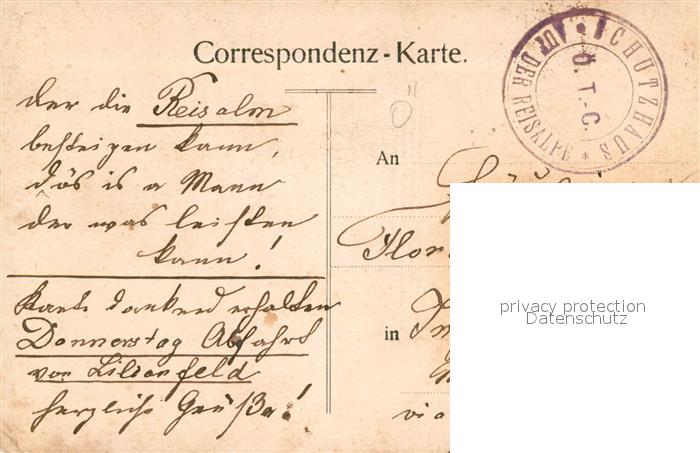 Correspondenz-Karte.
SCHUTZHAUS AUF DER REISALPE *
Ö. T.-C.
der die Reisalm
besteigen kann,
dös is a Mann
der was leisten
kann!
Karte dankend erhalten
Donnerstag Abfahrt
von Lilienfeld
herzliche Grüße!
An
Flor
in
via
privacy protection
Datenschutz